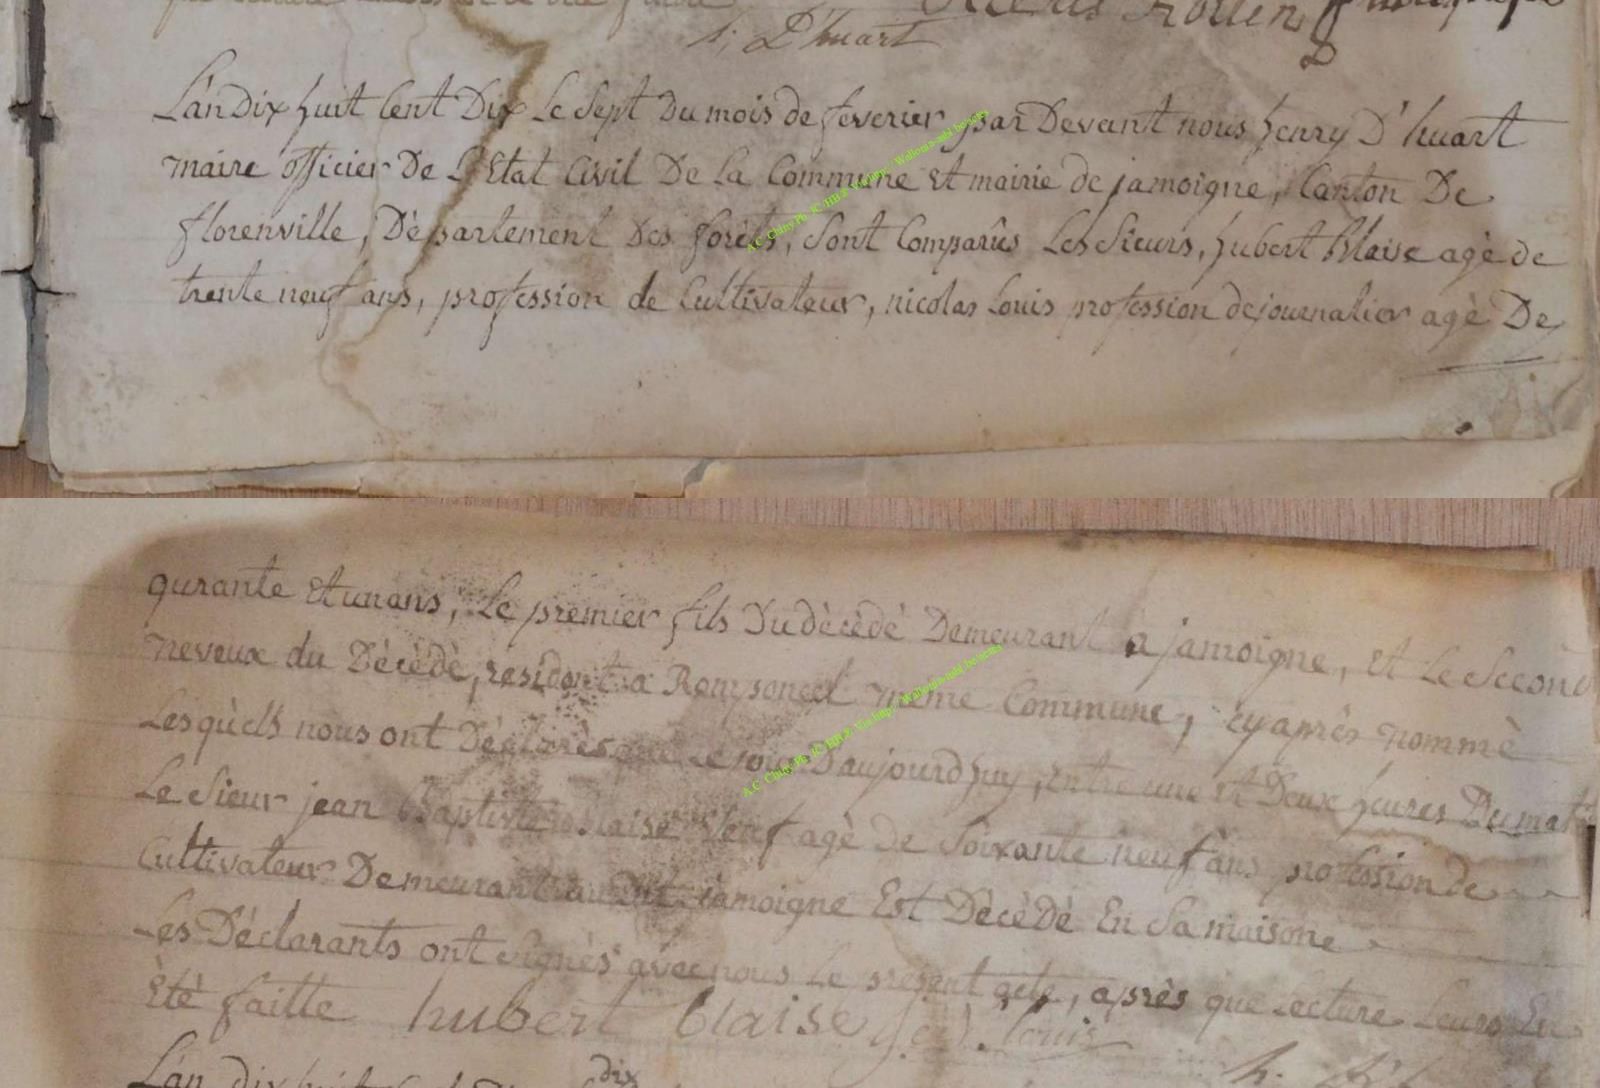 h; D'huart
L'an Dix huit Cent Dix Le Sept Du mois de feverier par Devant nous henry D'huart
maire officier De L'Etat Civil De La Commune Et mairie de jamoigne, Canton De
florenville, Département Des forêts, Sont Comparûs Les Sieurs, hubert Blaise agè de
trente neuf ans, profession de Cultivateur, nicolas Louis profession de journalier agè De
qurante Et un ans, Le premier fils Du dècèdè Demeurant a jamoigne, Et Le Second
neveux du Dècèdè, resident a Romponcel même Commune, cy après nommè
Lesquèls nous ont Déclarès que Le jour D'aujourdhuy, Entre une Et Deux heures Du mat
Le Sieur jean Baptiste Blaise Veuf agè de Soixante neuf ans profession de
Cultivateur Demeurant au Dit jamoigne Est Dècèdè En Sa maisone
Les Déclarants ont Signès avec nous Le present acte, après que Lecture Leurs En
Etè faitte hubert blaise Louis
h. D'
L'an dix huit Cent Dix
dix
A.C Chiny.Ph. JC HB.Z Via http:/ Wallonia-mbl be/actes
A.C Chiny.Ph. JC HB.Z Via http:/ Wallonia-mbl be/actes